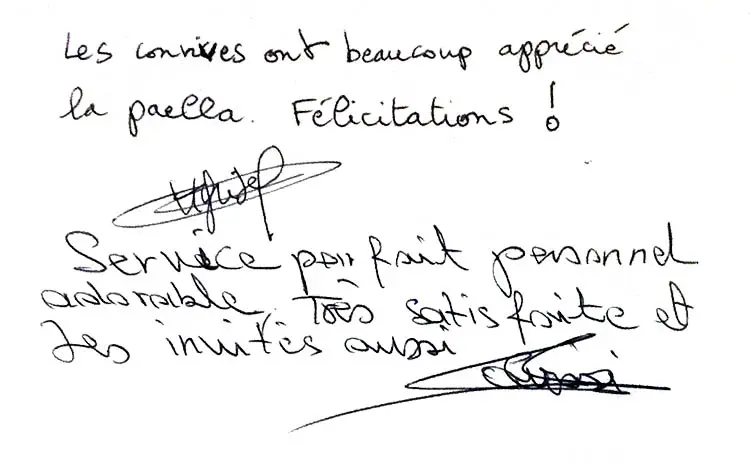 Les convives ont beaucoup apprécié
la paella. Félicitations !
Service parfait personnel
adorable. Très satisfaite et
les invités aussi